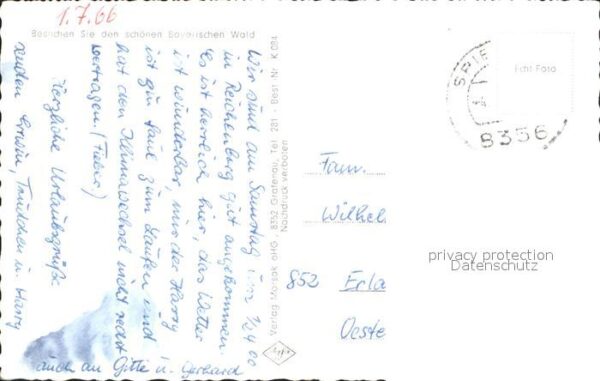 1.7.66
Besuchen Sie den schönen Bayerischen Wald
Wir sind am Samstag um
in Reichenberg gut angekommen
Es ist herrlich hier, das Wetter
ist wunderbar, nur der Harry
ist zu faul zum Laufen und
hat den Klimawechsel nicht recht
vertragen. (Fieber)
Herzliche Urlaubsgrüße
senden Erwin, Trudchen u. Harry
auch an Gitte u. Gerhard
Verlag Morsak oHG, 8352 Grafenau, Tel. 281 - Best Nr. K 084
Nachdruck verboten
Agfa
SPIE
8356
Echt Foto
Fam.
Wilhel
852 Erla
Oeste
privacy protection
Datenschutz